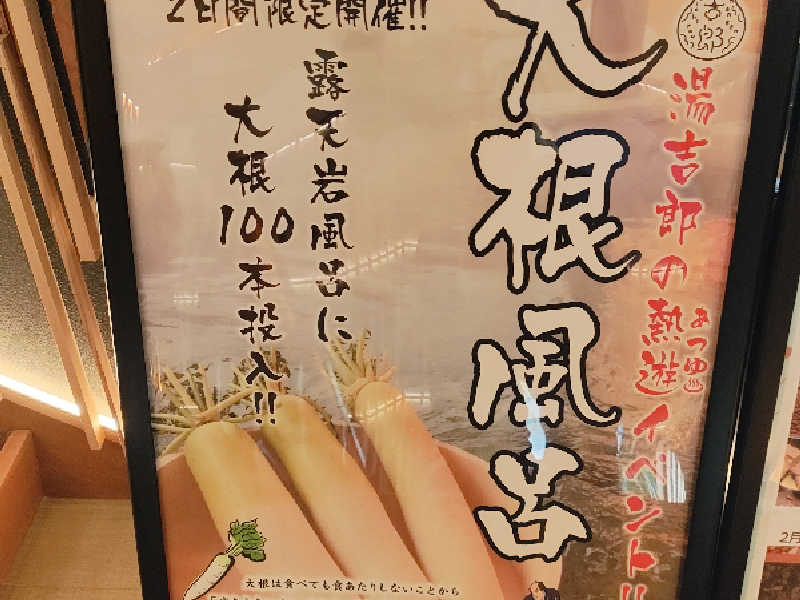 吉郎
湯吉郎の熱遊イベント!!
あつゆ
大根風呂
2日間限定開催!!
露天岩風呂に
大根100本投入!!
大根は食べても食あたりしないことから
2月